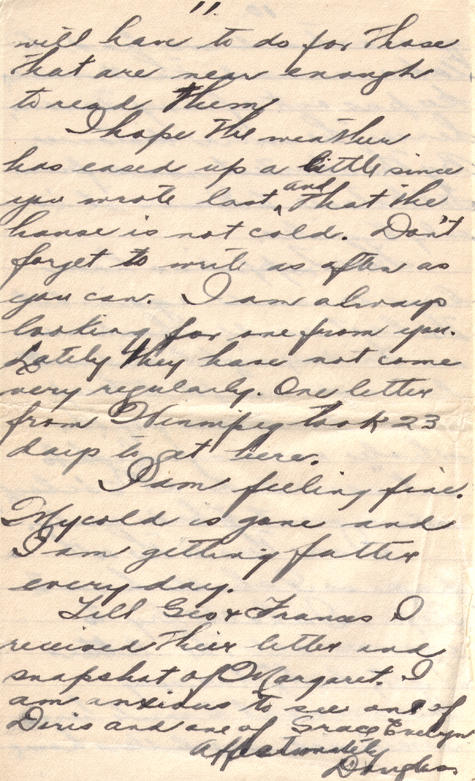 11.
will have to do for those
that are near enough
to read them
I hope the weather
has eased up a little since
you wrote last, and that the
house is not cold. Don't
forget to write as often as
you can. I am always
looking for one from you.
Lately they have not come
very regularly. One letter
from Winnipeg took 23
days to get here.
I am feeling fine.
My cold is gone and
I am getting fatter
every day.
Tell Geo & Frances I
received their letter and
snapshot of Margaret. I
am anxious to see one of
Doris and one of Grace Evelyn
Affectionately
Douglas